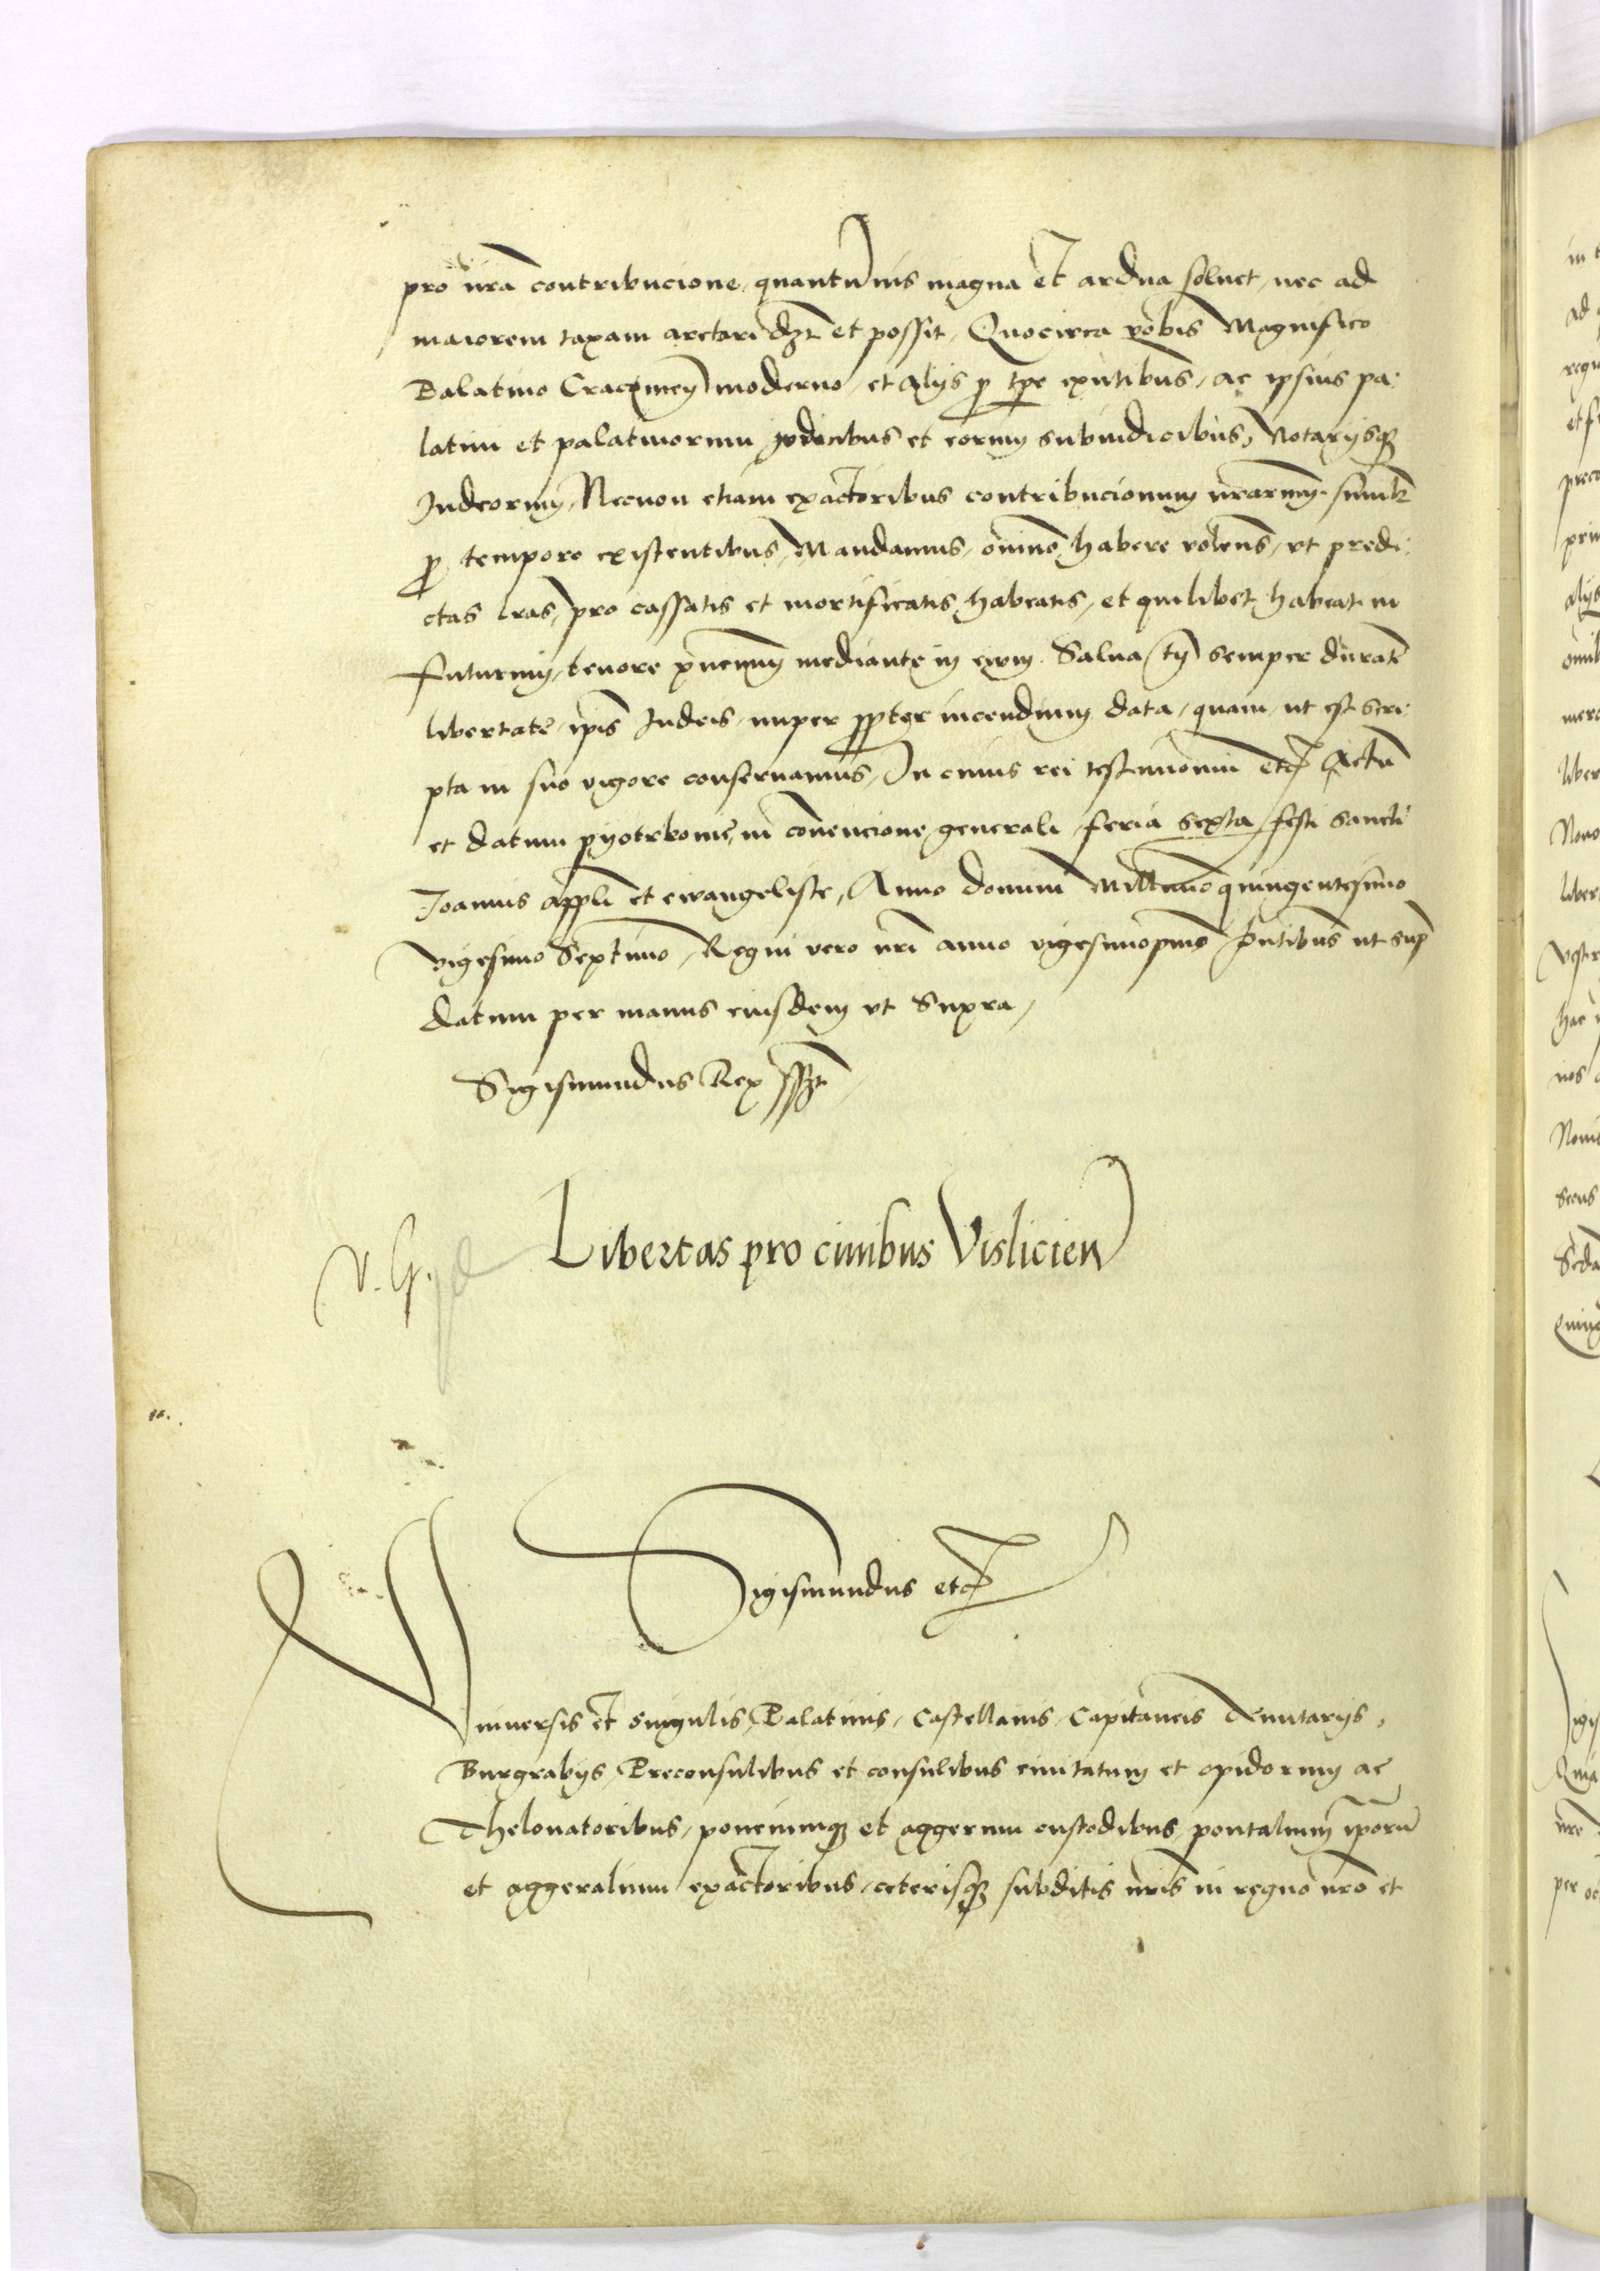 pro nrã contribucione quantũuis magna et ardua soluet, nec ad
maiorem taxam arctari dꝫt et possit, Quocirca vobis Magnifico
Palatino Cracouieñ moderno, et alijs ꝓ tꝑe exñtibus, ac ipsius pa-
latini et palatinorum judicibus et eorum subiudicibus, Notarijsqꝫ
Iudeorum, Necnon etiam exactoribus contribucionum nrarum
ꝓ tempore existentibus, Mandamus, omnino habere volens, vt predi-
ctas lras, pro cassatis et mortificatis habeatis, et quilibet habeat in
futurum, tenore p̃ncium mediante in ewm. Salua tñ semper durañ
libertate, ip̃is Iudeis, nuper ꝓpter incendium data, quam, ut est scri-
pta in suo vigore conseruamus, In cuius rei testimonium etc̃ Actũ
et datum pyotrkouie, in cõuencione generali, feria sexta festi sancti
Ioannis app̃li et ewangeliste, Anno domini Millesimo quingentesimo
vigesimo Septimo, Regni vero nrĩ anno vigesimoprimo, p̃ntibus ut sup̃
datum per manus eiusdem vt Supra,
Sigismundus Rex sszt
V. G.
Libertas pro ciuibus Vislicieñ
Sigismundus etc̃
Vniuersis et singulis, Palatinis, Castellanis, Capitaneis Tenutarijs,
Burgrabijs, Preconsulibus et consulibus ciuitatum et opidorum ac
Thelonatoribus, ponciumqꝫ et aggerum custodibus, pontalium ip̃orũ
et aggeralium exactoribus, ceterisqꝫ subditis nrĩs in regno nrõ et